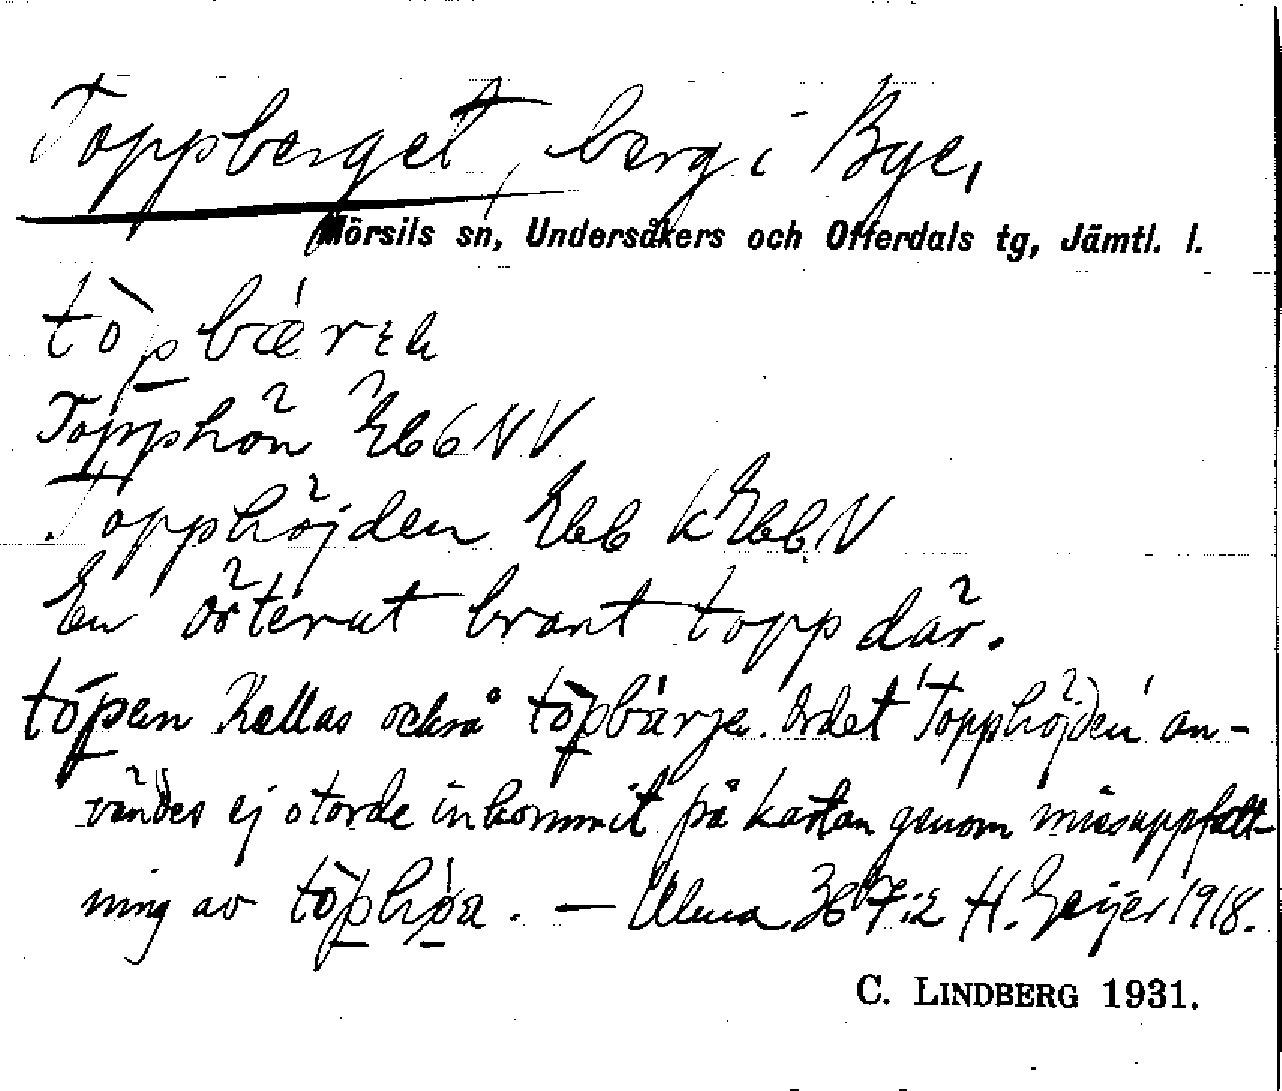 Toppberget, berg i Bye,
Mörsils sn, Undersåkers och Offerdals tg, Jämtl. l.
tòpbǽrɛ
Topphön Ebb NV
Topphöjden Ebb k Ebb N
En österut brant topp där.
tòpen kallas också tòpbärje. Ordet 'Topphöjden' an-
vändes ej o torde inkommit på kartan genom missuppfatt-
ning av tòphöa. — Ulma 367:2 H. Geijer 1918.
C. LINDBERG 1931.